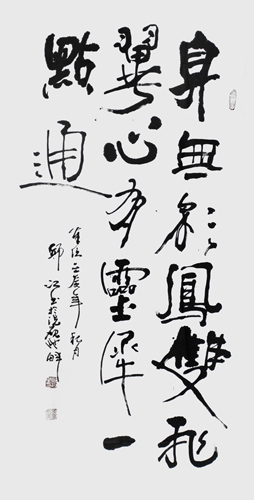 身無彩鳳雙飛
翼心有靈犀一
點通
壬辰年秋月